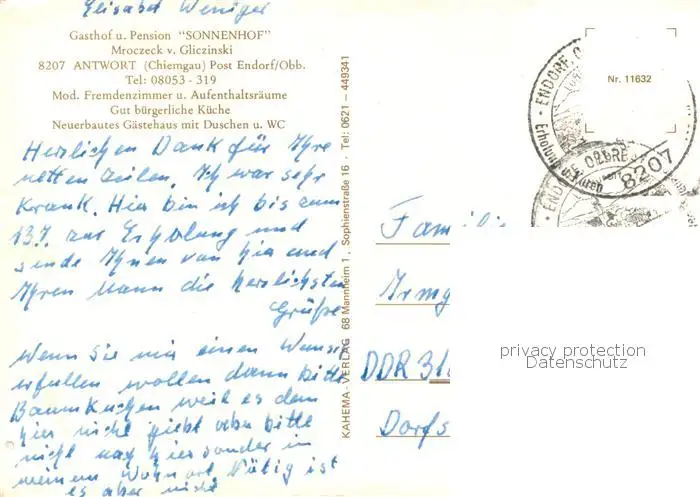 Elisabet Weniger
Gasthof u. Pension "SONNENHOF"
Mroczeck v. Gliczinski
8207 ANTWORT (Chiemgau) Post Endorf/Obb.
Tel: 08053 - 319
Mod. Fremdenzimmer u. Aufenthaltsräume
Gut bürgerliche Küche
Neuerbautes Gästehaus mit Duschen u. WC
Herzlichen Dank für Ihre
netten Zeilen. Ich war sehr
Krank. Hier bin ich bis zum
13.7. zur Erholung und
sende Ihnen von hier und
Ihren Mann die herzlichsten
Grüße
Wenn Sie mir einen Wunsch
erfüllen wollen dann bitte
Baumkuchen weil es dem
hier nicht giebt aber bitte
nicht nach hier sonder in
meinem Wohnort. Nötig ist
es aber nicht
KAHEMA-VERLAG 68 Mannheim 1, Sophienstraße 16 · Tel: 0621 — 449341
Nr. 11632
ENDORF, O
8207
Familie
Irmg
DDR 31
Dorfs
privacy protection
Datenschutz